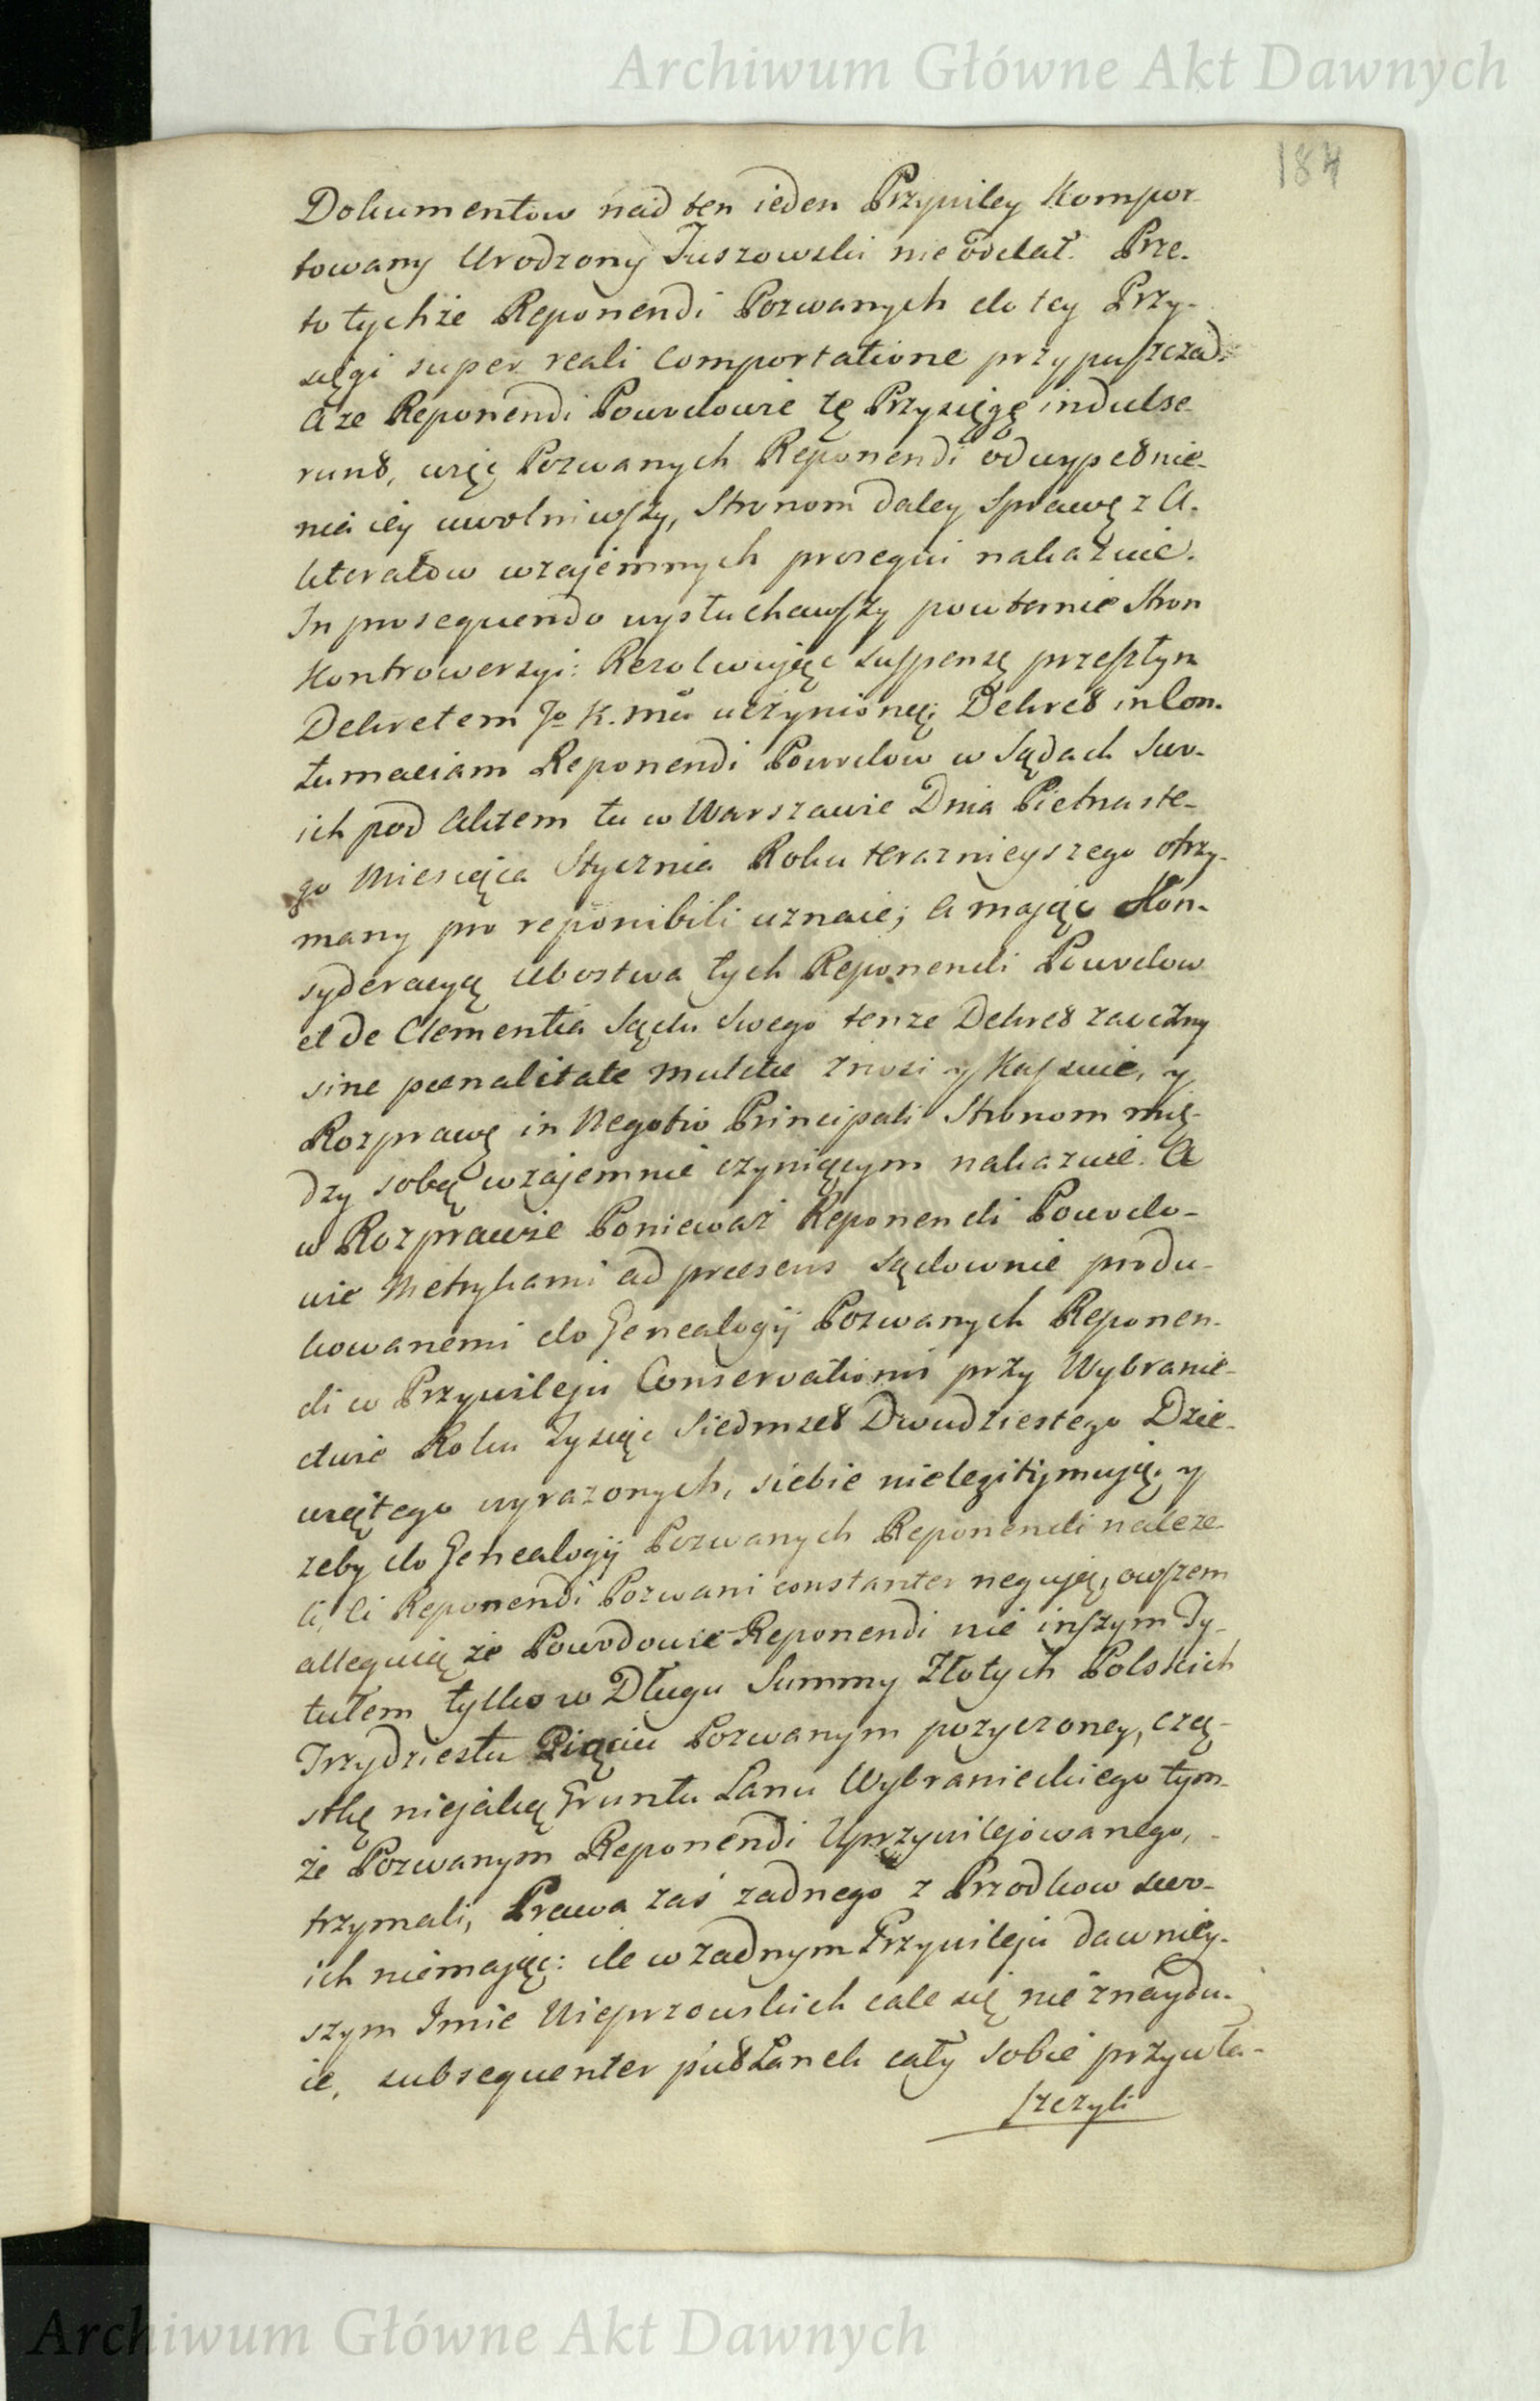 Archiwum Główne Akt Dawnych
184
Dokumentow nad ten ieden Przywiley Kompor-
towany Urodzony Juszowski nie oddał. Prze-
to tychże Reponendi Pozwanych do tey Przy-
sięgi super reali Comportatione przypuszcza.
A że Reponendi Powodowie tę Przysięgę indulse-
runt, więc Pozwanych Reponendi od wypełnie-
nia iey uwolniwszy, Stronom daley Sprawę z A-
kteratow wzajemnych prosequi nakazuie.
In prosequendo wysłuchawszy powtornie Stron
Kontrowersyi: Rezolwuiąc suspensę przeszłym
Dekretem Jo K. Mci uczynioną; Dekret in Con-
tumaciam Reponendi Powodow w Sądach Swo-
ich pod Aktem tu w Warszawie Dnia Pietnaste-
go Miesiąca Stycznia Roku teraznieyszego otrzy-
many pro reponibili uznaie; A mając Kon-
syderacyą Ubostwa tych Reponendi Powodow
et de Clementia Sądu Swego tenze Dekret zaoczny
sine poenalitate mulctae znosi y Kassuie, y
Rozprawę in Negotio Principali Stronom mię-
dzy sobą wzajemnie czyniącym nakazuie. A
w Rozprawie Ponieważ Reponendi Powodo-
wie Metrykami ad praesens sądownie produ-
kowanemi do Genealogij Pozwanych Reponen-
di w Przywileju Conservationis przy Wybranie-
ctwie Roku Tysiąc Siedmset Dwudziestego Dzie-
wiątego wyrazonych, siebie nielegitymują, y
zeby do Genealogij Pozwanych Reponendi należe-
li, Ci Reponendi Pozwani constanter negują, owszem
alleguią że Powodowie Reponendi nie inszym Ty-
tułem tylko w Długu Summy Złotych Polskich
Trzydziestu Pięciu Pozwanym pożyczoney, czą-
stkę niejaką Gruntu Łanu Wybranieckiego tym-
że Pozwanym Reponendi Uprzywilejowanego,
trzymali, Prawa zaś żadnego z Przodkow swo-
ich niemając: ile w żadnym Przywileju dawniey-
szym Imie Nieprzowskich cale się nie znaydu-
ie, subsequenter puł Łanek cały sobie przywła-
szczyli
Archiwum Główne Akt Dawnych